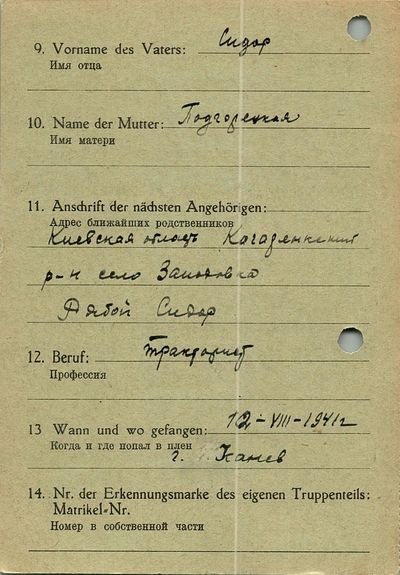 9. Vorname des Vaters: Сидор
Имя отца
10. Name der Mutter: Подгорецкая
Имя матери
11. Anschrift der nächsten Angehörigen:
Адрес ближайших родственников
Киевская область
р-н село
Рябой Сидор
12. Beruf: тракторист
Профессия
13 Wann und wo gefangen: 12-VIII-1941г
Когда и где попал в плен
г. Канев
14. Nr. der Erkennungsmarke des eigenen Truppenteils:
Matrikel-Nr.
Номер в собственной части